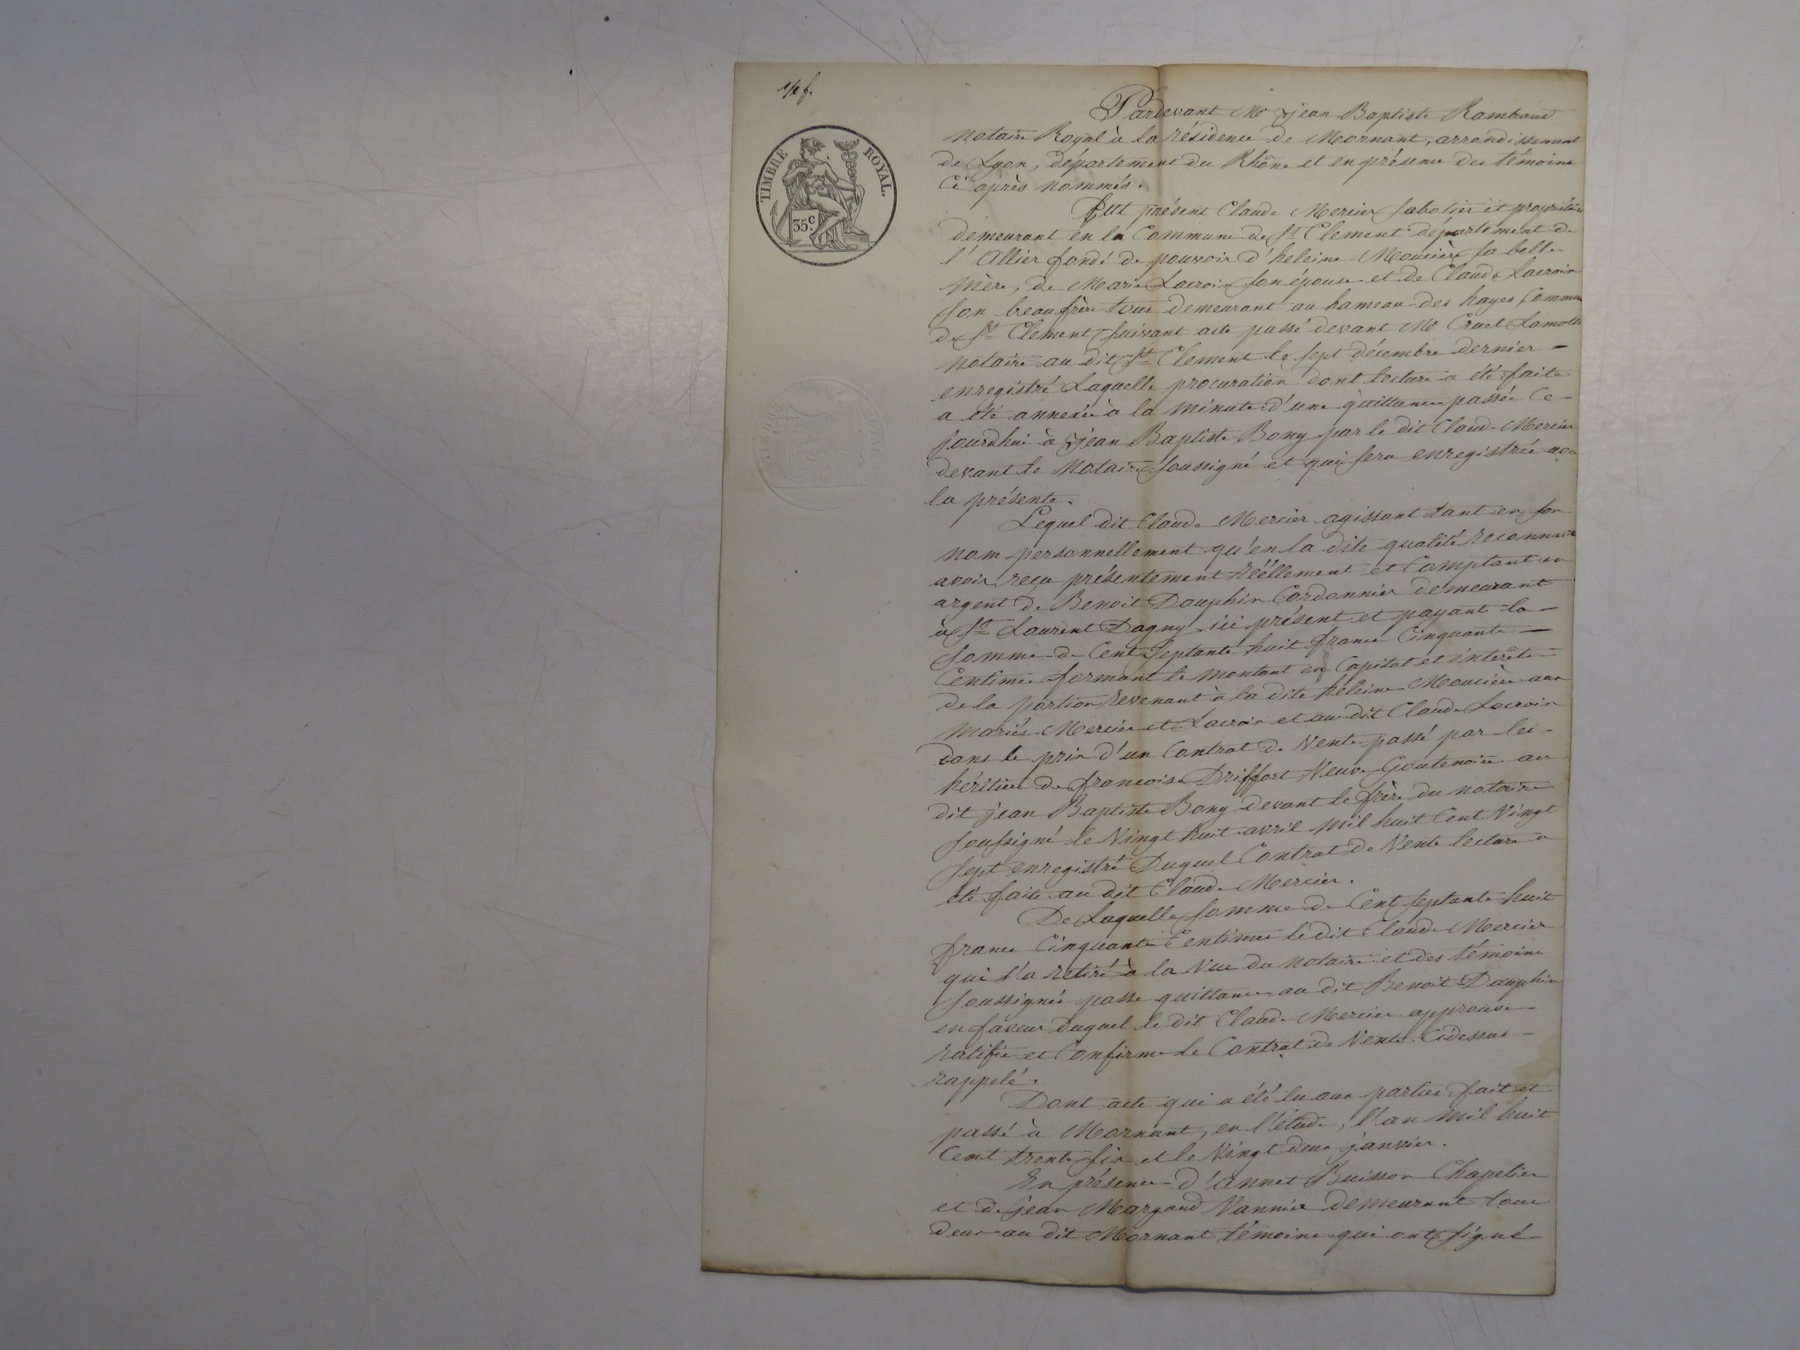 1/2 f.
TIMBRE ROYAL.
35 C.
Pardevant Me jean Baptiste Rambaud
notaire Royal à la résidence de Mornant, arrondissement
de Lyon, département du Rhône et en présence des témoins
Ci après nommés.
Fut présent Claude Mercier sabotier et propriétaire
demeurant en la Commune de St Clement département de
l'Allier fondé de pouvoir d'heleine Moucière sa belle
mère, de Marie Lacroix son épouse et de Claude Lacroix
son beau frère tous demeurant au hameau des hayes Commune
de St Clement, suivant acte passé devant Me Cruel Lamotte
notaire au dit St Clement le sept décembre dernier —
enregistré Laquelle procuration dont lecture a été faite
a été annexée à la minute d'une quittance passée Ce-
jourdhui à jean Baptiste Bony par le dit Claude Mercier
devant le Notaire soussigné et qui sera enregistrée avec
la présente.
Lequel dit Claude Mercier agissant tant en son
nom personnellement qu'en la dite qualité reconnait
avoir reçu présentement réellement et Comptant en
argent de Benoit Dauphin Cordonnier demeurant
à St Laurent Dagny ici présent et payant la —
somme de Cent septante huit francs Cinquante —
Centimes formant le montant en Capital et intérêts
de la portion revenant à la dite heleine Moucière aux
mariés Mercier et Lacroix et au dit Claude Lacroix
dans le prix d'un Contrat de Vente passé par les
héritiers de francoise Driffort Veuve Goutenoire au
dit jean Baptiste Bony devant le frère du notaire
soussigné le Vingt huit avril mil huit Cent Vingt
sept enregistré Duquel Contrat de Vente lecture a
été faite au dit Claude Mercier.
De Laquelle somme de Cent septante huit
francs Cinquante Centimes le dit Claude Mercier
qui l'a retiré à la Vue du notaire et des témoins
soussignés passe quittance au dit Benoit Dauphin
en faveur duquel le dit Claude Mercier approuve
ratifie et Confirme le Contrat de Vente Cidessus —
rappelé.
Dont acte qui a été lu aux parties fait et
passé à Mornant, en l'étude, l'an mil huit
Cent trente six et le Vingt deux janvier.
En présence d'annet Buisson Chapelier
et de jean Margand Vannier demeurant tous
deux au dit Mornant témoins qui ont signé